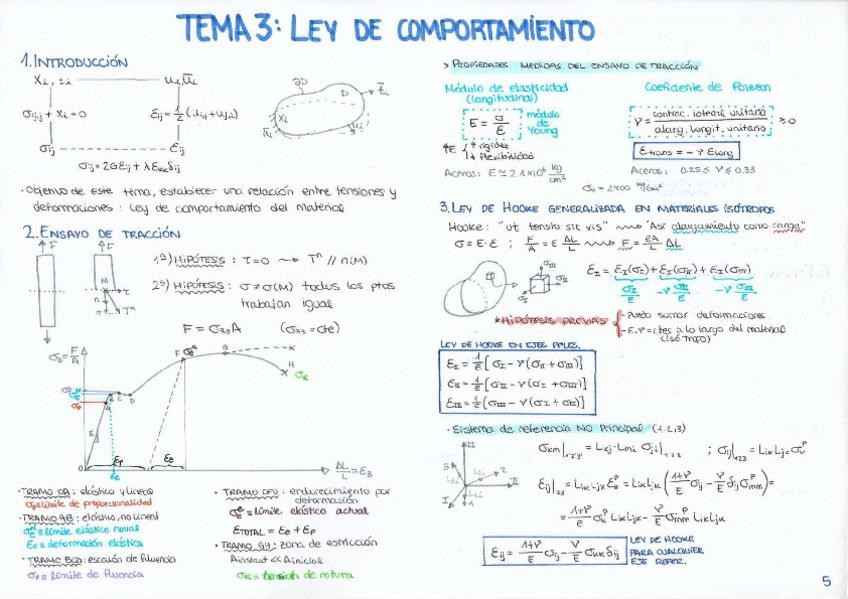 TEMA 3: LEY DE COMPORTAMIENTO
1. INTRODUCCIÓN
σij,j + Xi = 0
εij = 1/2 (ui,j + uj,i)
σij
εij
σij = 2Gεij + λεkk δij
· Objetivo de este tema, establecer una relación entre tensiones y
deformaciones: ley de comportamiento del material
2. ENSAYO DE TRACCIÓN
1ª) HIPÓTESIS: τ=0 ⟿ Tⁿ // n(M)
2ª) HIPÓTESIS: σ≠σ(M) todos los ptos
trabajan igual
F = σ33 A (σ33 = cte)
σ3 = F/A
ΔL/L = ε3
· TRAMO OA: elástico y lineal
σp ≡ límite de proporcionalidad
· TRAMO AB: elástico, no lineal
≡ límite elástico noval
εe ≡ deformación elástica
· TRAMO BCD: escalón de fluencia
≡ límite de fluencia
endurecimiento por
deformación
≡ límite elástico actual
εTOTAL = εe + εp
zona de estricción
Ainstant << Ainicial
σR ≡ tensión de rotura
> PROPIEDADES MEDIDAS DEL ENSAYO DE TRACCIÓN
Módulo de elasticidad
(longitudinal)
E = σ/ε
módulo
de
Young
↑E { ↑ rigidez
↓ flexibilidad
Aceros: E ≃ 2,1×10⁶ kg/cm²
Coeficiente de Poisson
ν = contrac. lateral unitaria / alarg. longit. unitario ≥ 0
εtrans = - ν εlong
Aceros: 0.25 ≤ ν ≤ 0.33
3. LEY DE HOOKE GENERALIZADA EN MATERIALES ISÓTROPOS
Hooke: "ut tensio sic vis" ⟿ "Así alargamiento como carga"
σ = E·ε ; F/A = E ΔL/L ⟿ F = EA/L ΔL
εI = εI(σI) + εI(σII) + εI(σIII)
σI/E -ν σII/E -ν σIII/E
* HIPÓTESIS PREVIAS { - Puedo sumar deformaciones
- E, ν = ctes a lo largo del material
(isótropo)
LEY DE HOOKE EN EJES PPLES.
εI = 1/E [σI - ν(σII + σIII)]
εII = 1/E [σII - ν(σI + σIII)]
εIII = 1/E [σIII - ν(σI + σII)]
· Sistema de referencia NO Principal (1,2,3)
εij = (1+ν)/E σij - ν/E σkk δij
LEY DE HOOKE
PARA CUALQUIER
EJE REFER.
5